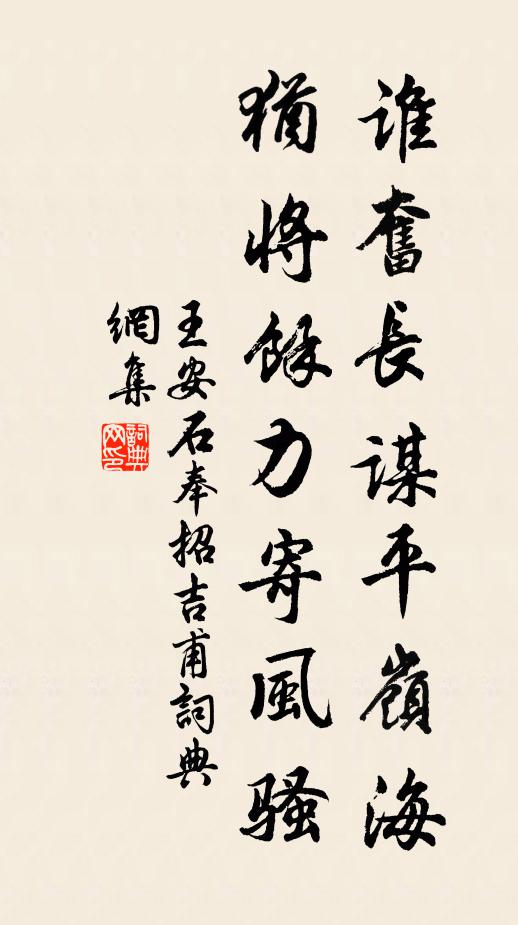 誰奮長謀平嶺海
猶將餘力寄風騷
王安石奉招吉甫詞典
網集
詞典
网印